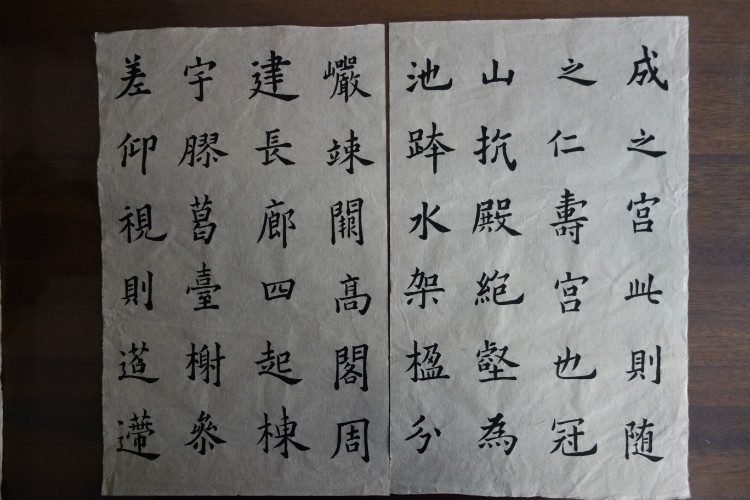 成之宮此則随
之仁壽宮也冠
山抗殿絶壑為
池跨水架楹分
巗竦闕高閣周
建長廊四起棟
宇膠葛臺榭叅
差仰視則迢遰